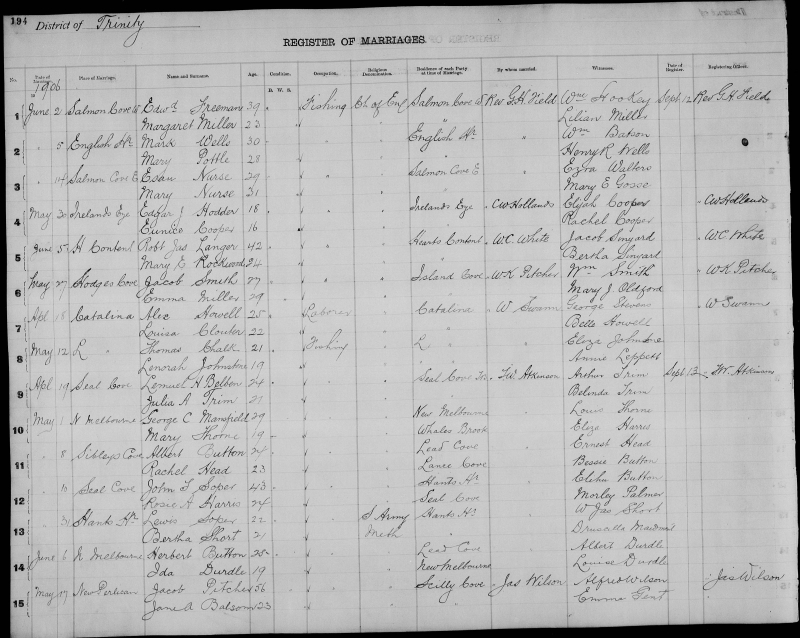 194
District of Trinity
REGISTER OF MARRIAGES.
No. Date of Marriage. Place of Marriage. Name and Surname. Age. Condition. Occupation. Religious Denomination. Residence of each Party at time of Marriage. By whom married. Witnesses. Date of Register. Registering Officer.
1906 B. W. S.
1 June 2 Salmon Cove W Edwd Freeman 39 Fishing Ch of Eng Salmon Cove W Rev G.H. Field Wm Hookey Sept 12 Rev G H Field
Margaret Miller 23 " Lilian Miller
2 " 5 English Hr Mark Wells 30 English Hr " Wm Batson
Mary Pottle 28 " Henry R Wells
3 " 14 Salmon Cove E Esau Nurse 29 Salmon Cove E Ezra Walters
Mary Nurse 31 " Mary E Gosse
4 May 30 Irelands Eye Edgar J Hodder 18 Irelands Eye CW Hollands Elijah Cooper " CW Hollands
Eunice Cooper 16 " Rachel Cooper
5 June 5 H Content Robt Jas Langer 42 Hearts Content W.C. White Jacob Sinyard " W.C White
Mary E Rockwood 24 " Bertha Sinyard
6 May 27 Hodges Cove Jacob Smith 27 Island Cove W K Pitcher Wm Smith " W K Pitcher
Emma Miller 29 " Mary J. Oldford
7 Apl 18 Catalina Alec Howell 25 Laborer Catalina W Swann George Stevens " W Swann
Louisa Clouter 22 " Belle Howell
8 May 12 L " Thomas Chalk 21 Fishing L " Eliza Johnstone
Lenorah Johnstone 19 " Annie Leppett
9 Apl 19 Seal Cove Lemuel H Belben 24 Seal Cove F.W. Atkinson Arthur Trim Sept 13 F.W. Atkinson
Julia A Trim 21 " Belinda Trim
10 May 1 N Melbourne George C Mansfield 29 New Melbourne Louis Thorne
Mary Thorne 19 Whales Brook Eliza Harris
11 " 8 Sibleys Cove Albert Button 24 Lead Cove Ernest Head
Rachel Head 23 Lance Cove Bessie Button
12 " 10 Seal Cove John T Soper 43 Hants Hr Elihu Button
Rosie A Harris 24 Seal Cove Morley Palmer
13 " 31 Hants Hr Lewis Soper 22 S Army Hants Hr W Jas Short
Bertha Short 21 Meth " Druscilla
14 June 6 N Melbourne Herbert Button 25 Lead Cove Albert Durdle
Ida Durdle 19 New Melbourne Louise Durdle
15 May 17 New Perlican Jacob Pitcher 56 Scilly Cove Jas Wilson Alfred Wilson Jas Wilson
Jane A Balsom 23 Emma Gent